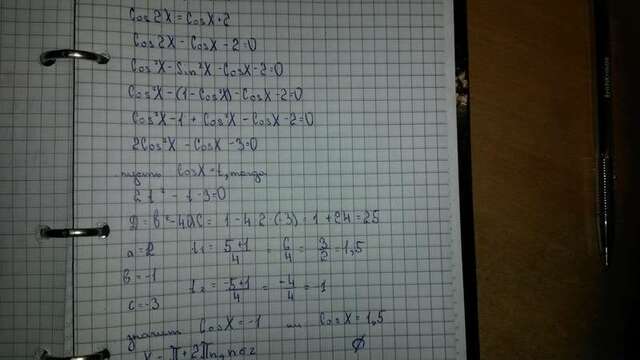 Cos2X = CosX+2
Cos2X - CosX - 2=0
Cos²X - Sin²X - CosX - 2=0
Cos²X - (1 - Cos²X) - CosX - 2=0
Cos²X - 1 + Cos²X - CosX - 2=0
2Cos²X - CosX - 3=0
пусть CosX = t, тогда
2t² - t - 3=0
D = b² - 4ac = 1 - 4·2·(-3) = 1 + 24 = 25
a = 2 t₁ = 5+1/4 = 6/4 = 3/2 = 1,5
b = -1
t₂ = -5+1/4 = -4/4 = -1
c = -3
значит CosX = -1 или CosX = 1,5
X = π + 2πn, n∈z ∅